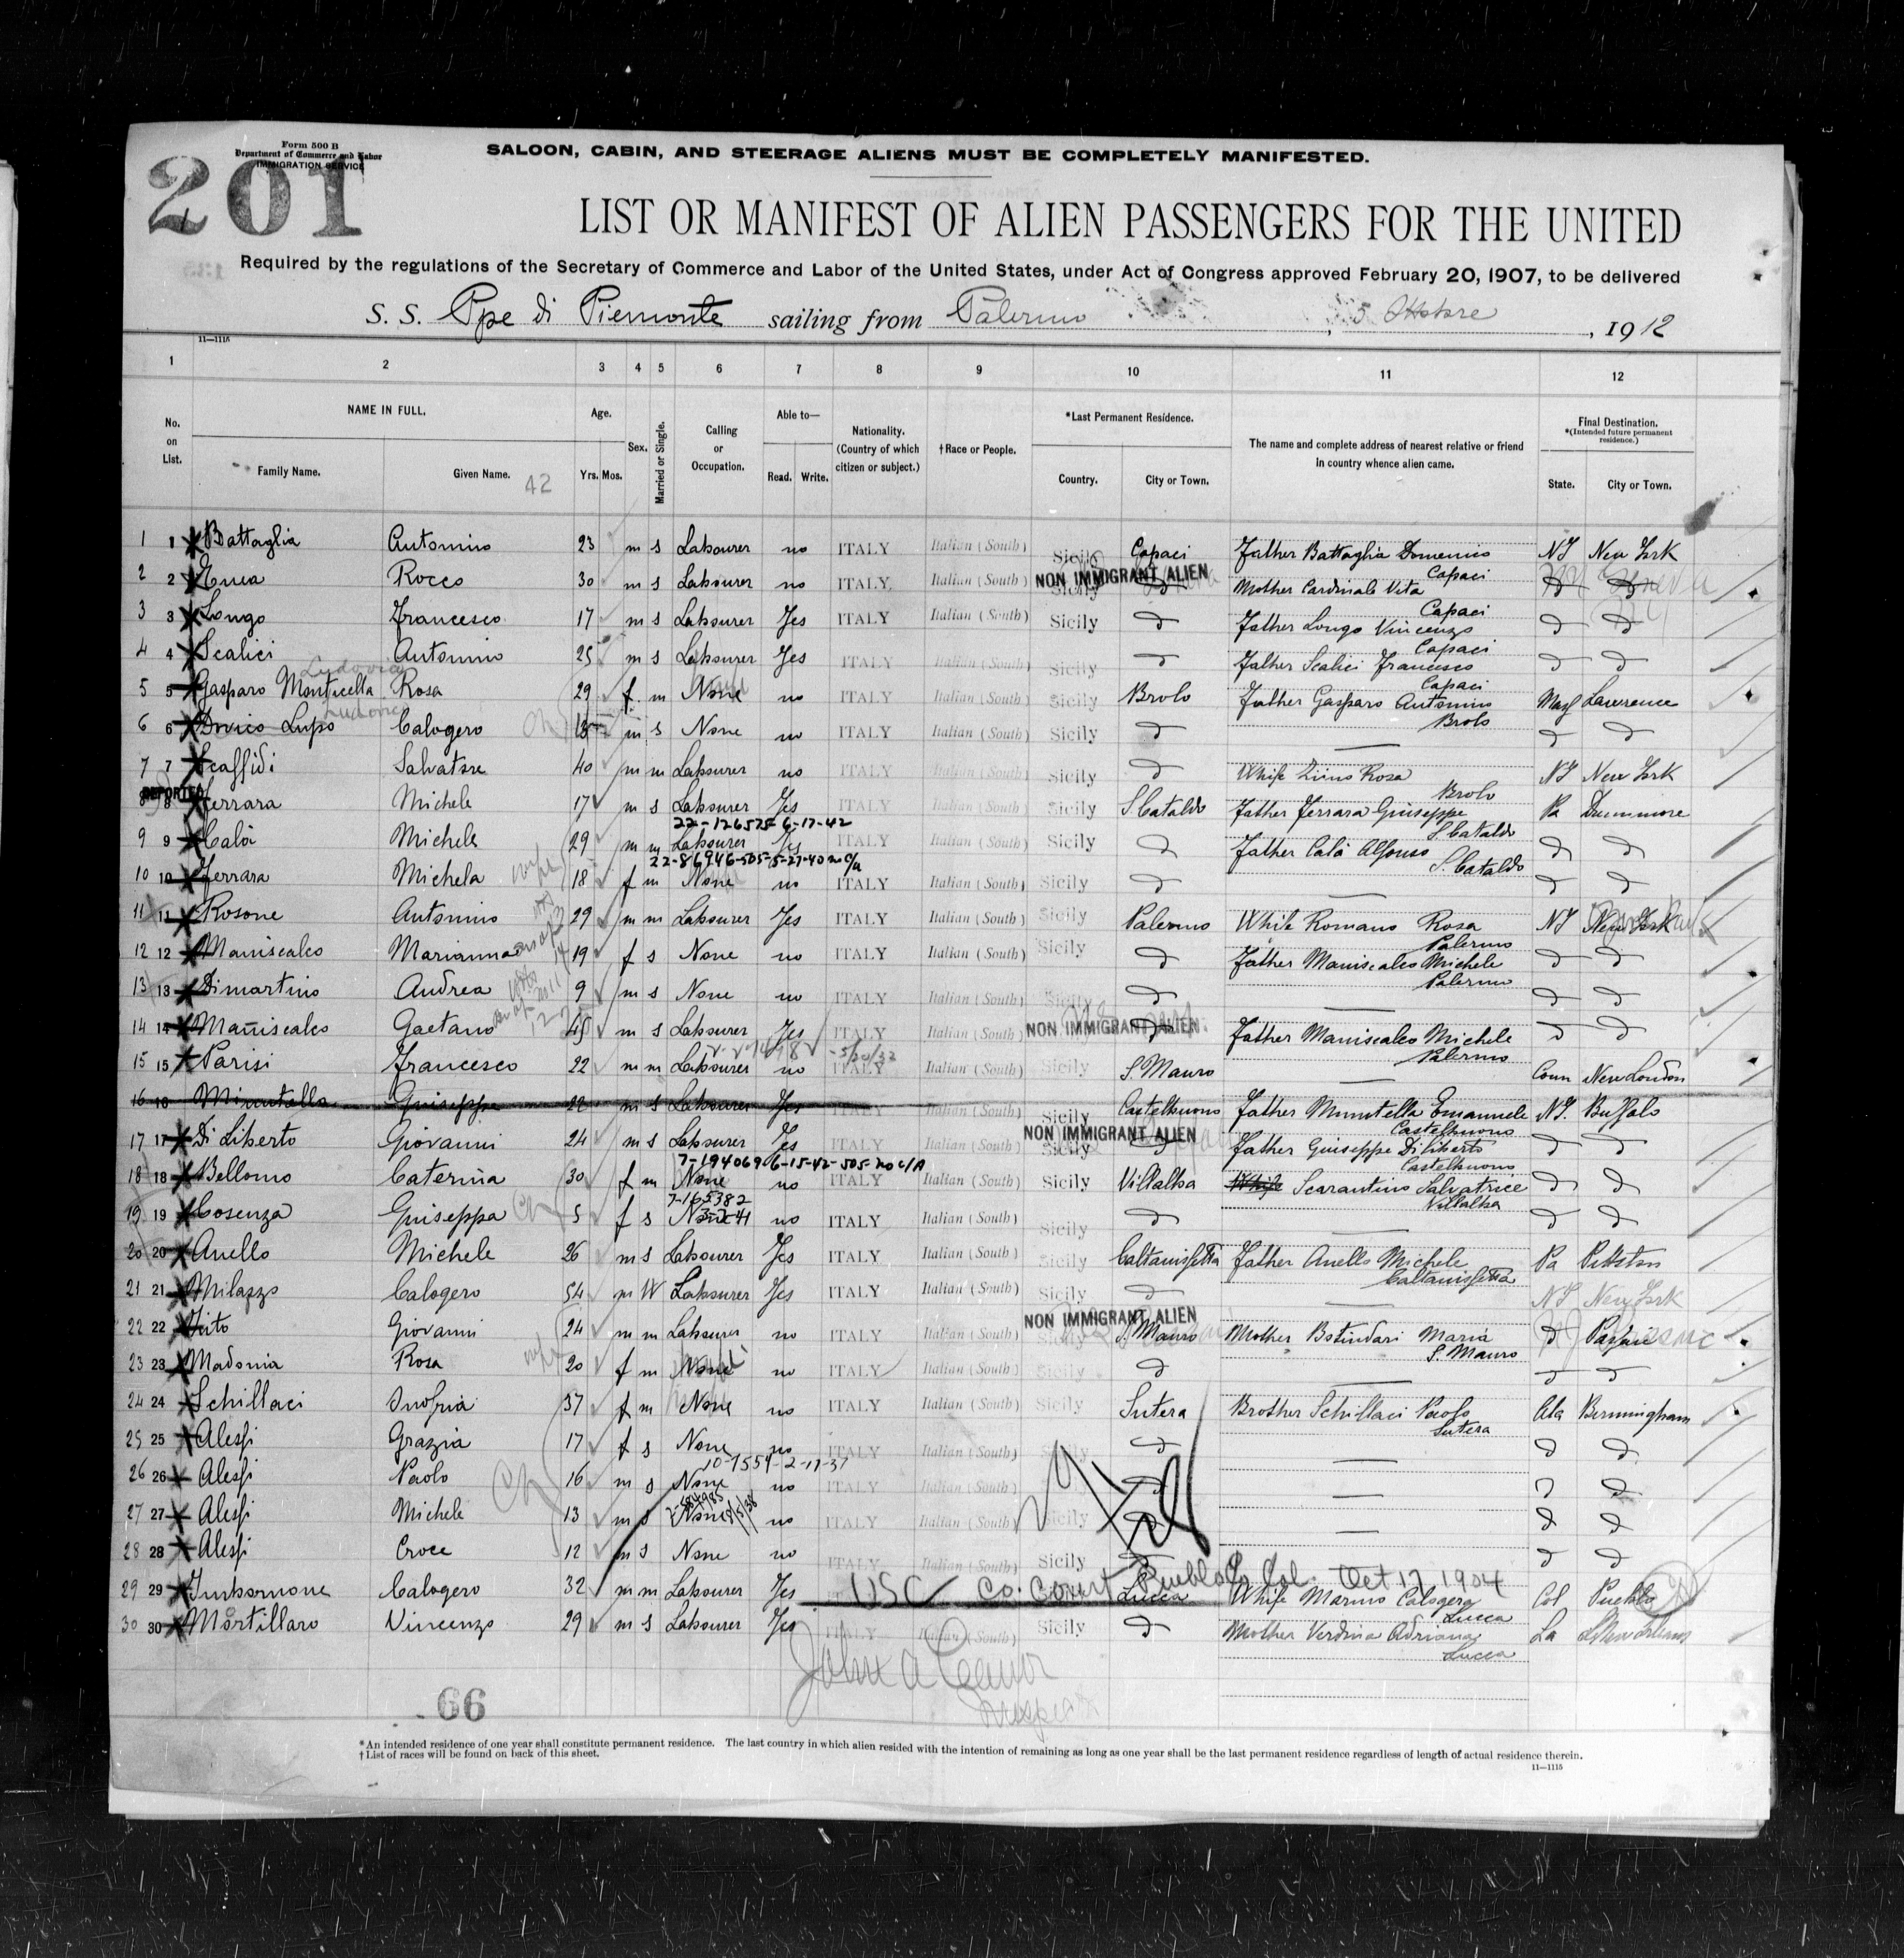 201
Form 500 B
Department of Commerce and Labor
IMMIGRATION SERVICE
SALOON, CABIN, AND STEERAGE ALIENS MUST BE COMPLETELY MANIFESTED.
LIST OR MANIFEST OF ALIEN PASSENGERS FOR THE UNITED
Required by the regulations of the Secretary of Commerce and Labor of the United States, under Act of Congress approved February 20, 1907, to be delivered
S. S. Ppe di Piemonte sailing from Palermo, 5 Ottobre, 1912
11—1115
1 2 3 4 5 6 7 8 9 10 11 12
No. on List. NAME IN FULL. Family Name. Given Name. 42 Age. Yrs. Mos. Sex. Married or Single. Calling or Occupation. Able to— Read. Write. Nationality. (Country of which citizen or subject.) †Race or People. *Last Permanent Residence. Country. City or Town. The name and complete address of nearest relative or friend in country whence alien came. Final Destination. *(Intended future permanent residence.) State. City or Town.
1 1 Battaglia Antonino 23 m s Labourer no ITALY Italian (South) Sicily Capaci Father Battaglia Domenico Capaci NY New York
2 2 Enea Rocco 30 m s Labourer no ITALY. Italian (South) Sicily NON IMMIGRANT ALIEN d Mother Cardinale Vita Capaci
3 3 Longo Francesco 17 m s Labourer Yes ITALY Italian (South) Sicily d Father Longo Vincenzo Capaci d d
4 4 Scalici Antonino 25 m s Labourer Yes ITALY Italian (South) Sicily d Father Scalici Francesco Capaci d d
Ludovico
5 5 Gasparo Monticella Rosa 29 f m None no ITALY Italian (South) Sicily Brolo Father Gasparo Antonino Brolo Mass Lawrence
Ludovico
6 6 Lupo Calogero m s None no ITALY Italian (South) Sicily d d d
7 7 Scaffidi Salvatore 40 m m Labourer no ITALY Italian (South) Sicily d Whife Rosa Brolo NY New York
8 8 Ferrara Michele 17 m s Labourer Yes ITALY Italian (South) Sicily S. Cataldo Father Ferrara Giuseppe S. Cataldo Pa Dunmore
22-126575 6-17-42
9 9 Calà Michele 29 m m Labourer Yes ITALY Italian (South) Sicily d Father Calà Alfonso S. Cataldo d d
22-86946-505-5-27-40 no c/a
10 10 Ferrara Michela 18 f m None no ITALY Italian (South) Sicily d d d
11 11 Rosone Antonino 29 m m Labourer Yes ITALY Italian (South) Sicily Palermo Whife Romano Rosa Palermo NY New York
12 12 Maniscalco Marianna 19 f s None no ITALY Italian (South) Sicily d Father Maniscalco Michele Palermo d d
13 13 Dimartino Andrea 9 m s None no ITALY Italian (South) Sicily d d d
14 14 Maniscalco Gaetano 45 m s Labourer Yes ITALY Italian (South) NON IMMIGRANT ALIEN d Father Maniscalco Michele Palermo d d
15 15 Parisi Francesco 22 m m Labourer no ITALY Italian (South) Sicily S. Mauro Conn New London
16 16 Minutella Giuseppe 22 m s Labourer Yes ITALY Italian (South) Sicily Castelbuono Father Minutella Emanuele Castelbuono NY. Buffalo
17 17 Di Liberto Giovanni 24 m s Labourer Yes ITALY Italian (South) Sicily NON IMMIGRANT ALIEN Father Giuseppe Diliberto Castelbuono d d
7-194069 6-15-42-505-no c/A
18 18 Bellomo Caterina 30 f m None no ITALY Italian (South) Sicily Villalba Whife Scarantino Salvatrice Villalba d d
7-165382
19 19 Cosenza Giuseppa Ch 5 f s None no ITALY Italian (South) Sicily d d d
20 20 Anello Michele 26 m s Labourer Yes ITALY Italian (South) Sicily Caltanissetta Father Anello Michele Caltanissetta Pa Pittston
21 21 Milazzo Calogero 54 m W Labourer Yes ITALY Italian (South) Sicily d NY New York
22 22 Vito Giovanni 24 m m Labourer no ITALY Italian (South) NON IMMIGRANT ALIEN S. Mauro Mother Botindari Maria S. Mauro d
23 23 Madonia Rosa 20 f m None no ITALY Italian (South) Sicily d d d
24 24 Schillaci Onofria 37 f m None no ITALY Italian (South) Sicily Sutera Brother Schillaci Paolo Sutera Ala Birmingham
25 25 Alessi Grazia 17 f s None no ITALY Italian (South) d d d
26 26 Alessi Paolo Ch 16 m s None no ITALY Italian (South) d d d
27 27 Alessi Michele 13 m s None no ITALY Italian (South) Sicily d d d
28 28 Alessi Croce 12 m s None no ITALY Italian (South) Sicily d d
29 29 Imbornone Calogero 32 m m Labourer Yes USC Co. Court Pueblo Col. Oct 17 1904 Lucca Whife Marino Calogera Lucca Col Pueblo
30 30 Mortillaro Vincenzo 29 m s Labourer Yes ITALY Italian (South) Sicily d Mother Verdina Adriana Lucca La New Orleans
66
*An intended residence of one year shall constitute permanent residence. The last country in which alien resided with the intention of remaining as long as one year shall be the last permanent residence regardless of length of actual residence therein.
†List of races will be found on back of this sheet.
11—1115